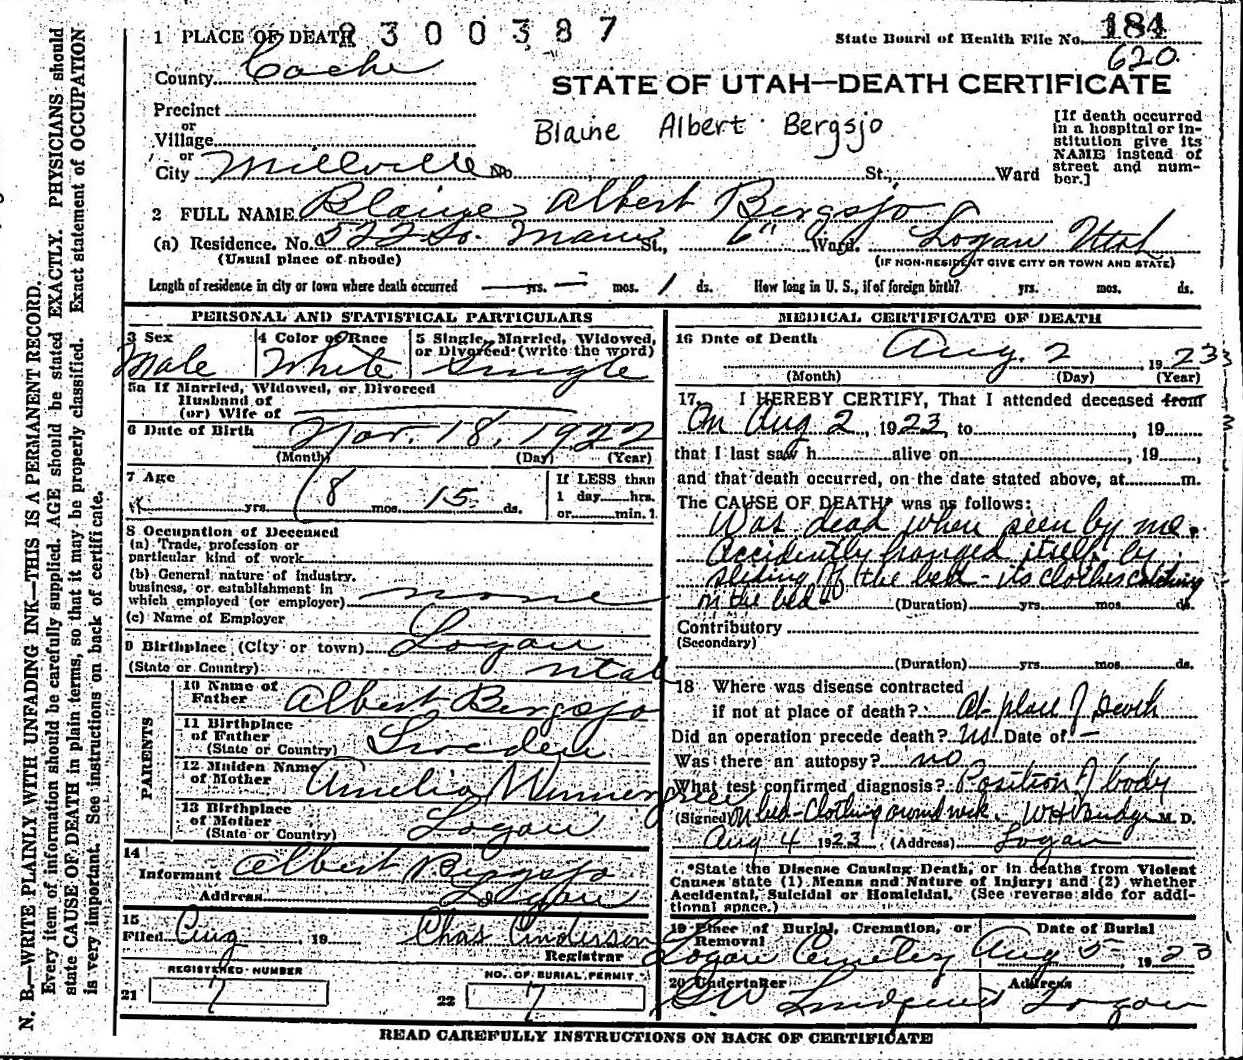 1 PLACE OF DEATH 2300387
State Board of Health File No. 184
620
County Cache
STATE OF UTAH—DEATH CERTIFICATE
Precinct
or
Village
or
City Millville No. St., Ward
Blaine Albert Bergsjo
[If death occurred in a hospital or institution give its NAME instead of street and number.]
2 FULL NAME Blaine Albert Bergsjo
(a) Residence. No. 522 So. Main St., 6" Ward. Logan Utah
(Usual place of abode) (IF NON-RESIDENT GIVE CITY OR TOWN AND STATE)
Length of residence in city or town where death occurred — yrs. — mos. 1 ds. How long in U. S., if of foreign birth? yrs. mos. ds.
PERSONAL AND STATISTICAL PARTICULARS
3 Sex 4 Color or Race 5 Single, Married, Widowed, or Divorced (write the word)
Male White Single
5a If Married, Widowed, or Divorced
Husband of
(or) Wife of
6 Date of Birth Nov. 18, 1922
(Month) (Day) (Year)
7 Age
yrs. 8 mos. 15 ds.
If LESS than
1 day hrs.
or min.
8 Occupation of Deceased
(a) Trade, profession or
particular kind of work
(b) General nature of industry,
business, or establishment in
which employed (or employer) none
(c) Name of Employer
9 Birthplace (City or town) Logan
(State or Country) Utah
PARENTS
10 Name of
Father Albert Bergsjo
11 Birthplace
of Father Sweden
(State or Country)
12 Maiden Name
of Mother Amelia
13 Birthplace
of Mother Logan
(State or Country)
14
Informant Albert Bergsjo
Address Logan
15
Filed Aug, 19 Chas Anderson
Registrar
REGISTERED NUMBER NO. OF BURIAL PERMIT
21 7 22 7
MEDICAL CERTIFICATE OF DEATH
16 Date of Death Aug. 2, 1923
(Month) (Day) (Year)
17. I HEREBY CERTIFY, That I attended deceased from
On Aug 2, 1923, to , 19
that I last saw h alive on , 19 ,
and that death occurred, on the date stated above, at m.
The CAUSE OF DEATH* was as follows:
Was dead when seen by me.
Accidently hanged itself by
sliding off the bed - its clothes catching
on the bed (Duration) yrs. mos. ds.
Contributory
(Secondary)
(Duration) yrs. mos. ds.
18 Where was disease contracted
if not at place of death? At place of Death
Did an operation precede death? no Date of —
Was there an autopsy? no
What test confirmed diagnosis? Position of body
(Signed) on bed - Clothing around neck. M. D.
Aug 4 1923 (Address) Logan
*State the Disease Causing Death, or in deaths from Violent
Causes state (1) Means and Nature of Injury; and (2) whether
Accidental, Suicidal or Homicidal. (See reverse side for addi-
tional space.)
19 Place of Burial, Cremation, or Removal Date of Burial
Logan Cemetery Aug 5 1923
20 Undertaker Address
Logan
READ CAREFULLY INSTRUCTIONS ON BACK OF CERTIFICATE
N. B.—WRITE PLAINLY, WITH UNFADING INK—THIS IS A PERMANENT RECORD.
Every item of information should be carefully supplied. AGE should be stated EXACTLY. PHYSICIANS should
state CAUSE OF DEATH in plain terms, so that it may be properly classified. Exact statement of OCCUPATION
is very important. See instructions on back of certificate.